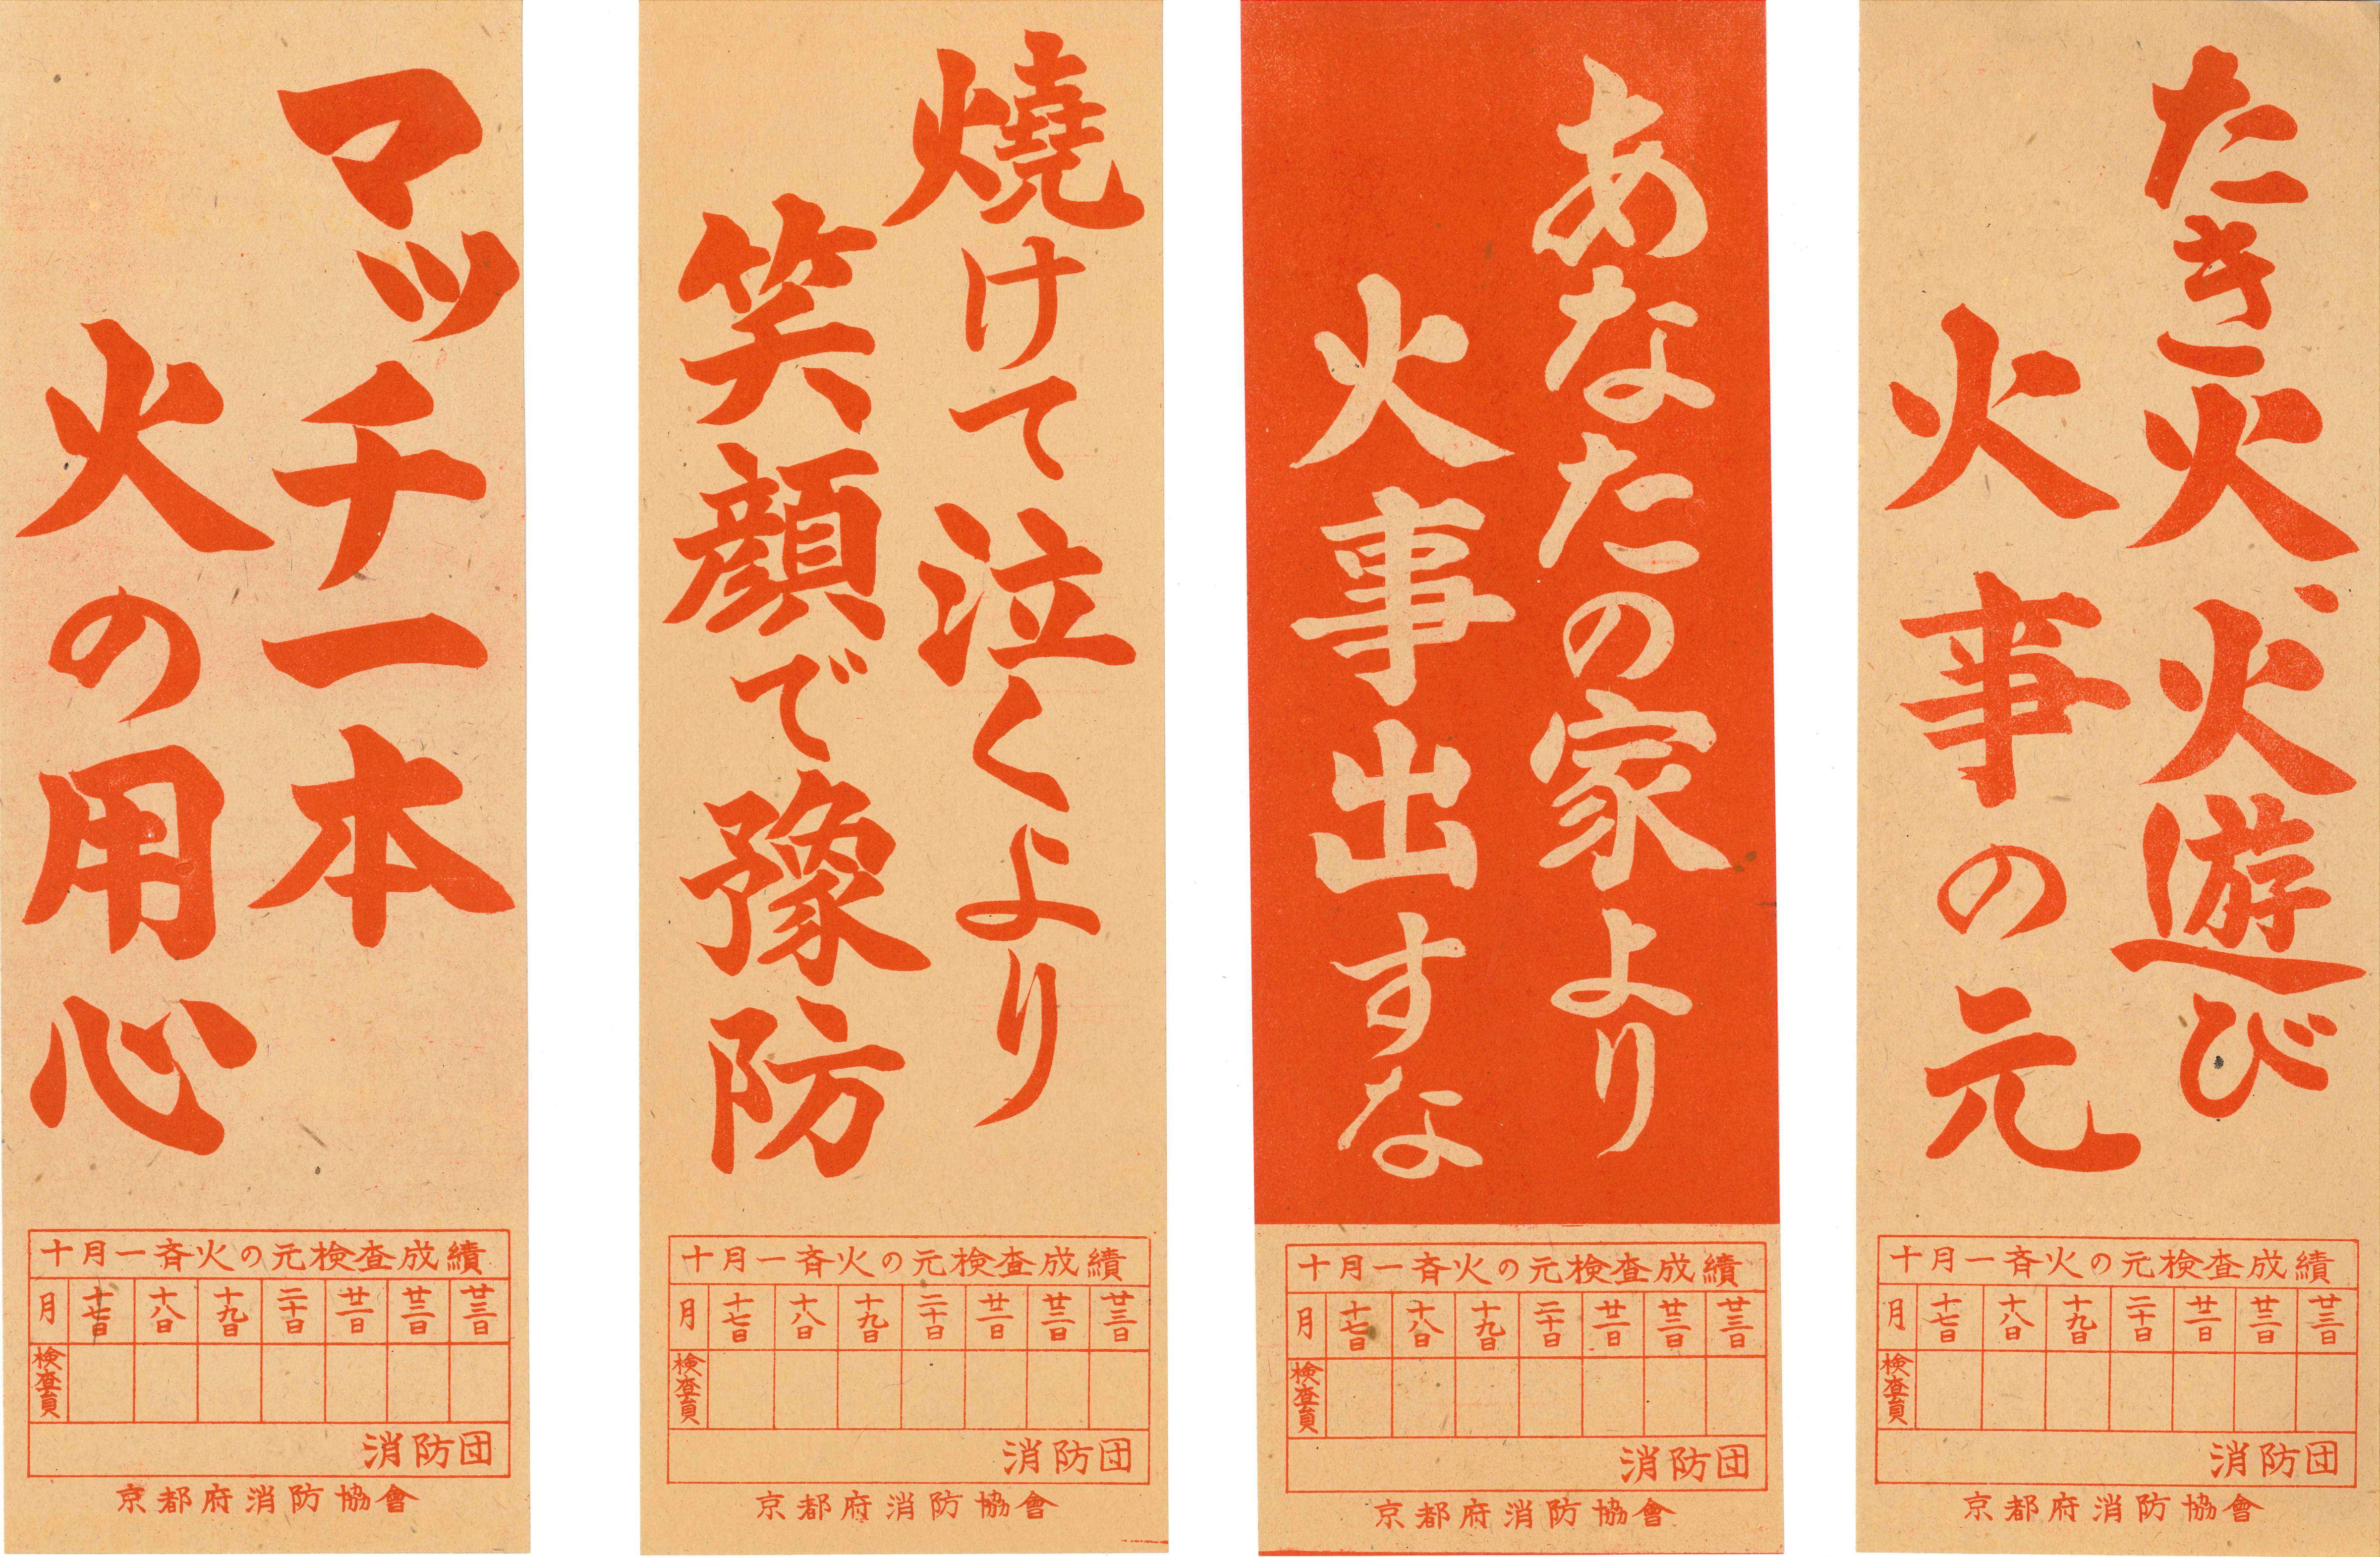 マッチ一本
火の用心
十月一斉火の元検査成績
月 十七日 十八日 十九日 二十日 廿一日 廿二日 廿三日
検査員
消防団
京都府消防協會
燒けて泣くより
笑顔で豫防
十月一斉火の元検査成績
月 十七日 十八日 十九日 二十日 廿一日 廿二日 廿三日
検査員
消防団
京都府消防協會
あなたの家より
火事出すな
十月一斉火の元検査成績
月 十七日 十八日 十九日 二十日 廿一日 廿二日 廿三日
検査員
消防団
京都府消防協會
たき火、火遊び
火事の元
十月一斉火の元検査成績
月 十七日 十八日 十九日 二十日 廿一日 廿二日 廿三日
検査員
消防団
京都府消防協會